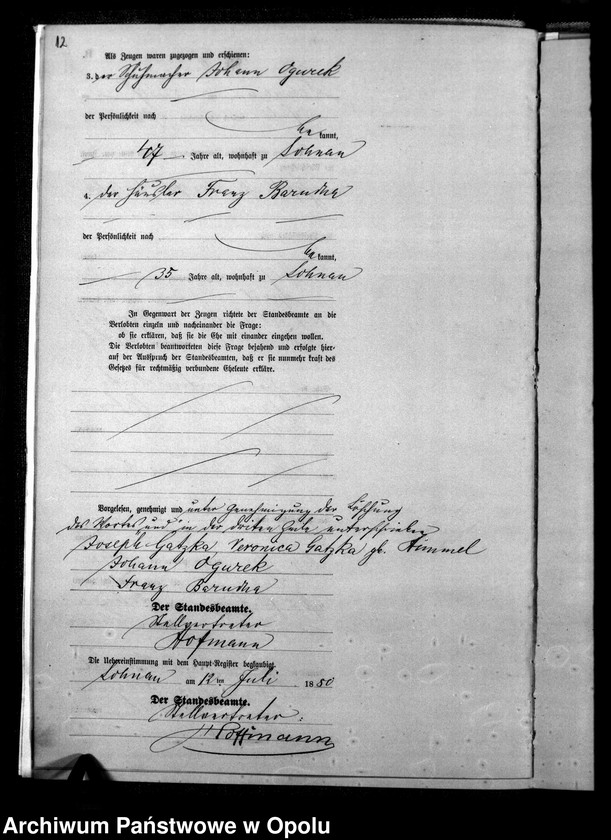 12
Als Zeugen waren zugezogen und erschienen:
3. der Schuhmacher Johann Ogurek
der Persönlichkeit nach
be kannt,
47 Jahre alt, wohnhaft zu Lohnau
4. der Häusler Franz Barucha
der Persönlichkeit nach
be kannt,
35 Jahre alt, wohnhaft zu Lohnau
In Gegenwart der Zeugen richtete der Standesbeamte an die
Verlobten einzeln und nacheinander die Frage:
ob sie erklären, daß sie die Ehe mit einander eingehen wollen.
Die Verlobten beantworteten diese Frage bejahend und erfolgte hier-
auf der Ausspruch des Standesbeamten, daß er sie nunmehr kraft des
Gesetzes für rechtmäßig verbundene Eheleute erkläre.
Vorgelesen, genehmigt und unter Genehmigung der Löschung
des Wortes "und" in der dritten Zeile unterschrieben
Joseph Gatzka, Veronica Gatzka gb. Himmel
Johann Ogurek
Franz Barucha
Der Standesbeamte.
Stellvertreter
Hofmann
Die Uebereinstimmung mit dem Haupt-Register beglaubigt
Lohnau am 12 ten Juli 1880
Der Standesbeamte.
Stellvertreter:
Hoffmann
Archiwum Państwowe w Opolu